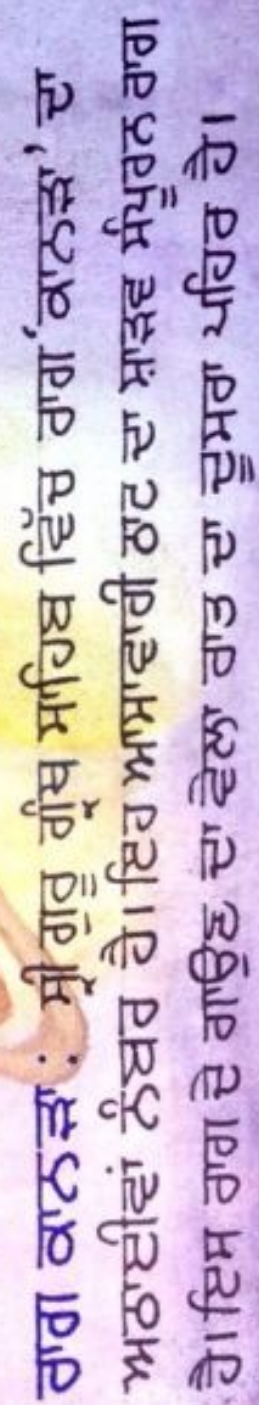 ਰਾਗ ਕਾਨੜਾ : ਸ੍ਰੀ ਗੁਰੂ ਗ੍ਰੰਥ ਸਾਹਿਬ ਵਿੱਚ ਰਾਗ 'ਕਾਨੜਾ' ਦਾ
ਅਠਾਈਵਾਂ ਨੰਬਰ ਹੈ। ਇਹ ਆਸਾਵਰੀ ਠਾਟ ਦਾ ਸ਼ਾੜਵ ਸੰਪੂਰਨ ਰਾਗ
ਹੈ। ਇਸ ਰਾਗ ਦੇ ਗਾਉਣ ਦਾ ਵੇਲਾ ਰਾਤ ਦਾ ਦੂਸਰਾ ਪਹਿਰ ਹੈ।